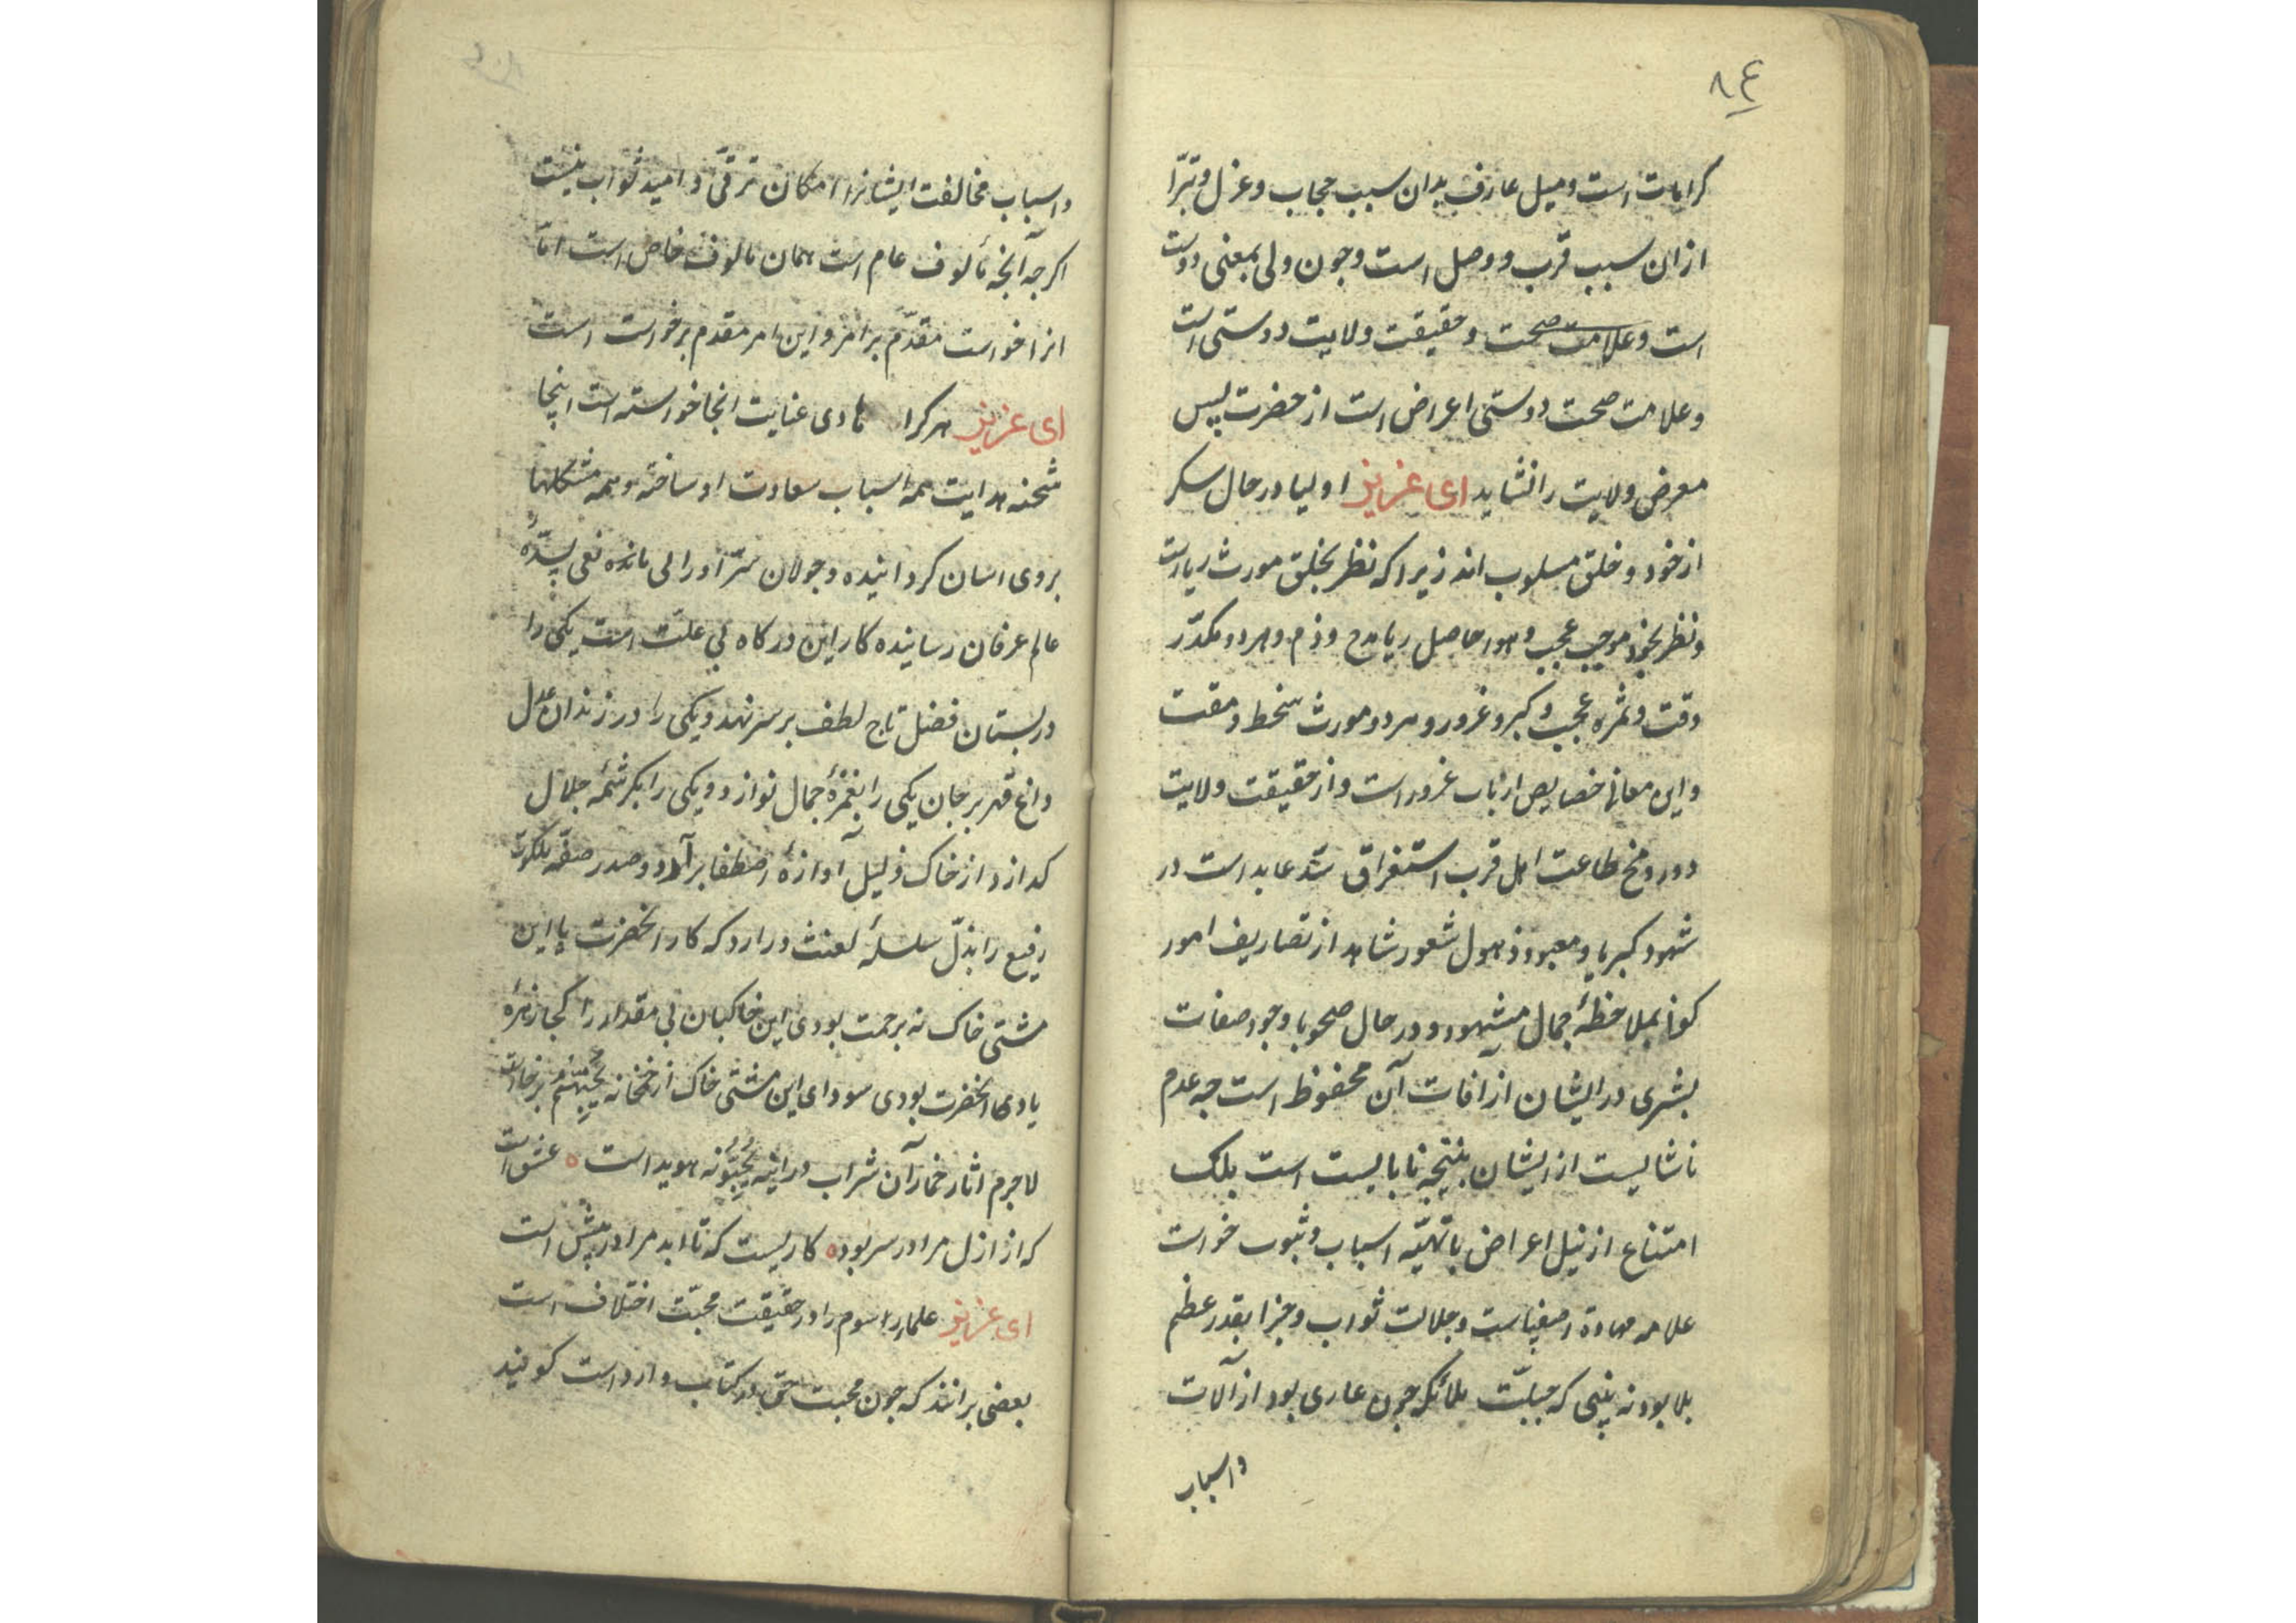 ۸۴
کرامات است و میل عارف بدان سبب حجاب و عزل و تبرّا
از ان سبب قرب و وصل است و جون ولی بمعنی دوست
است و علامت صحت و حقیقت ولایت دوستی است
و علامت صحت دوستی اعراض است از حضرت پس
معرض ولایت را نشاید ای عزیز اولیا در حال سکر
از خود و خلق مسلوب اند زیرا که نظر بخلق مورث ریا است
و نظر بخود موجب عجب و هوا حاصل ریا مدح و ذم و هر دو مکدّر
وقت و ثمره عجب و کبر و غرور و هر دو مورث سخط و مقت
و این معانی خصایص ارباب غرور است و از حقیقت ولایت
دور و مخ طاعت اهل قرب استغراق سّر عابد است در
شهود کبریا و معبود ذهول شعور شاهد از تصاریف امور
کونی بملاحظهٔ جمال مشهود و در حال صحو با وجود صفات
بشری در ایشان از افات آن محفوظ است جه عدم
ناشایست از ایشان نتیجه نابایست است بلک
امتناع از نیل اعراض با تهیّه اسباب و ثبوب خواست
علامه مهاوة اصفیاست و جلالت ثواب و جزا بقدر عظم
بلا بود نه بینی که جبلّت ملائکه جون عاری بود از آلات
و اسباب
و اسباب مخالفت ایشانرا امکان ترقّی و امید ثواب نیست
اکرجه آنجه مألوف عام است همان مالوف خاص است امّا
انرا خواست مقدّم بر امر و این امر مقدم بر خواست است
ای عزیز هر کرا هادی عنایت انجا خواسته است اینجا
شحنه هدایت همه اسباب سعادت او ساخته و همه مشکلها
بروی اسان کردانیده و جولان سّر او را لی مانده نفی پسدّهٔ
عالم عرفان رسانیده کار این درکاه بی علّت است یکی را
در بستان فضل تاج لطف بر سر نهد و یکی را در زندان عدل
داغ قهر بر جان یکی را بغمزهٔ جمال نوازد و یکی را بکرشمه جلال
کدازد از خاک ذلیل آوازهٔ اصطفا برآرد و صدر صفّه ملکوت
رفیع را بذلّ سلسلهٔ لعنت درارد که کار انحضرت با این
مشتی خاک نه برحمت بودی این خاکیان بی مقدار را کجا زهرهٔ
یاد انحضرت بودی سودای این مشتی خاک از خمخانه یُحِبُّهُم برخاست
لاجرم اثار خمار آن شراب در انیه یُحِبُّونَه هویداست ه عشق است
که از ازل مرا در سر بوده ه کاریست که تا ابد مرا در پیش است
ای عزیز علما را سوم را در حقیقت محبّت اختلاف است
بعضی برانند که جون محبت حق در کتاب وارد است کویند